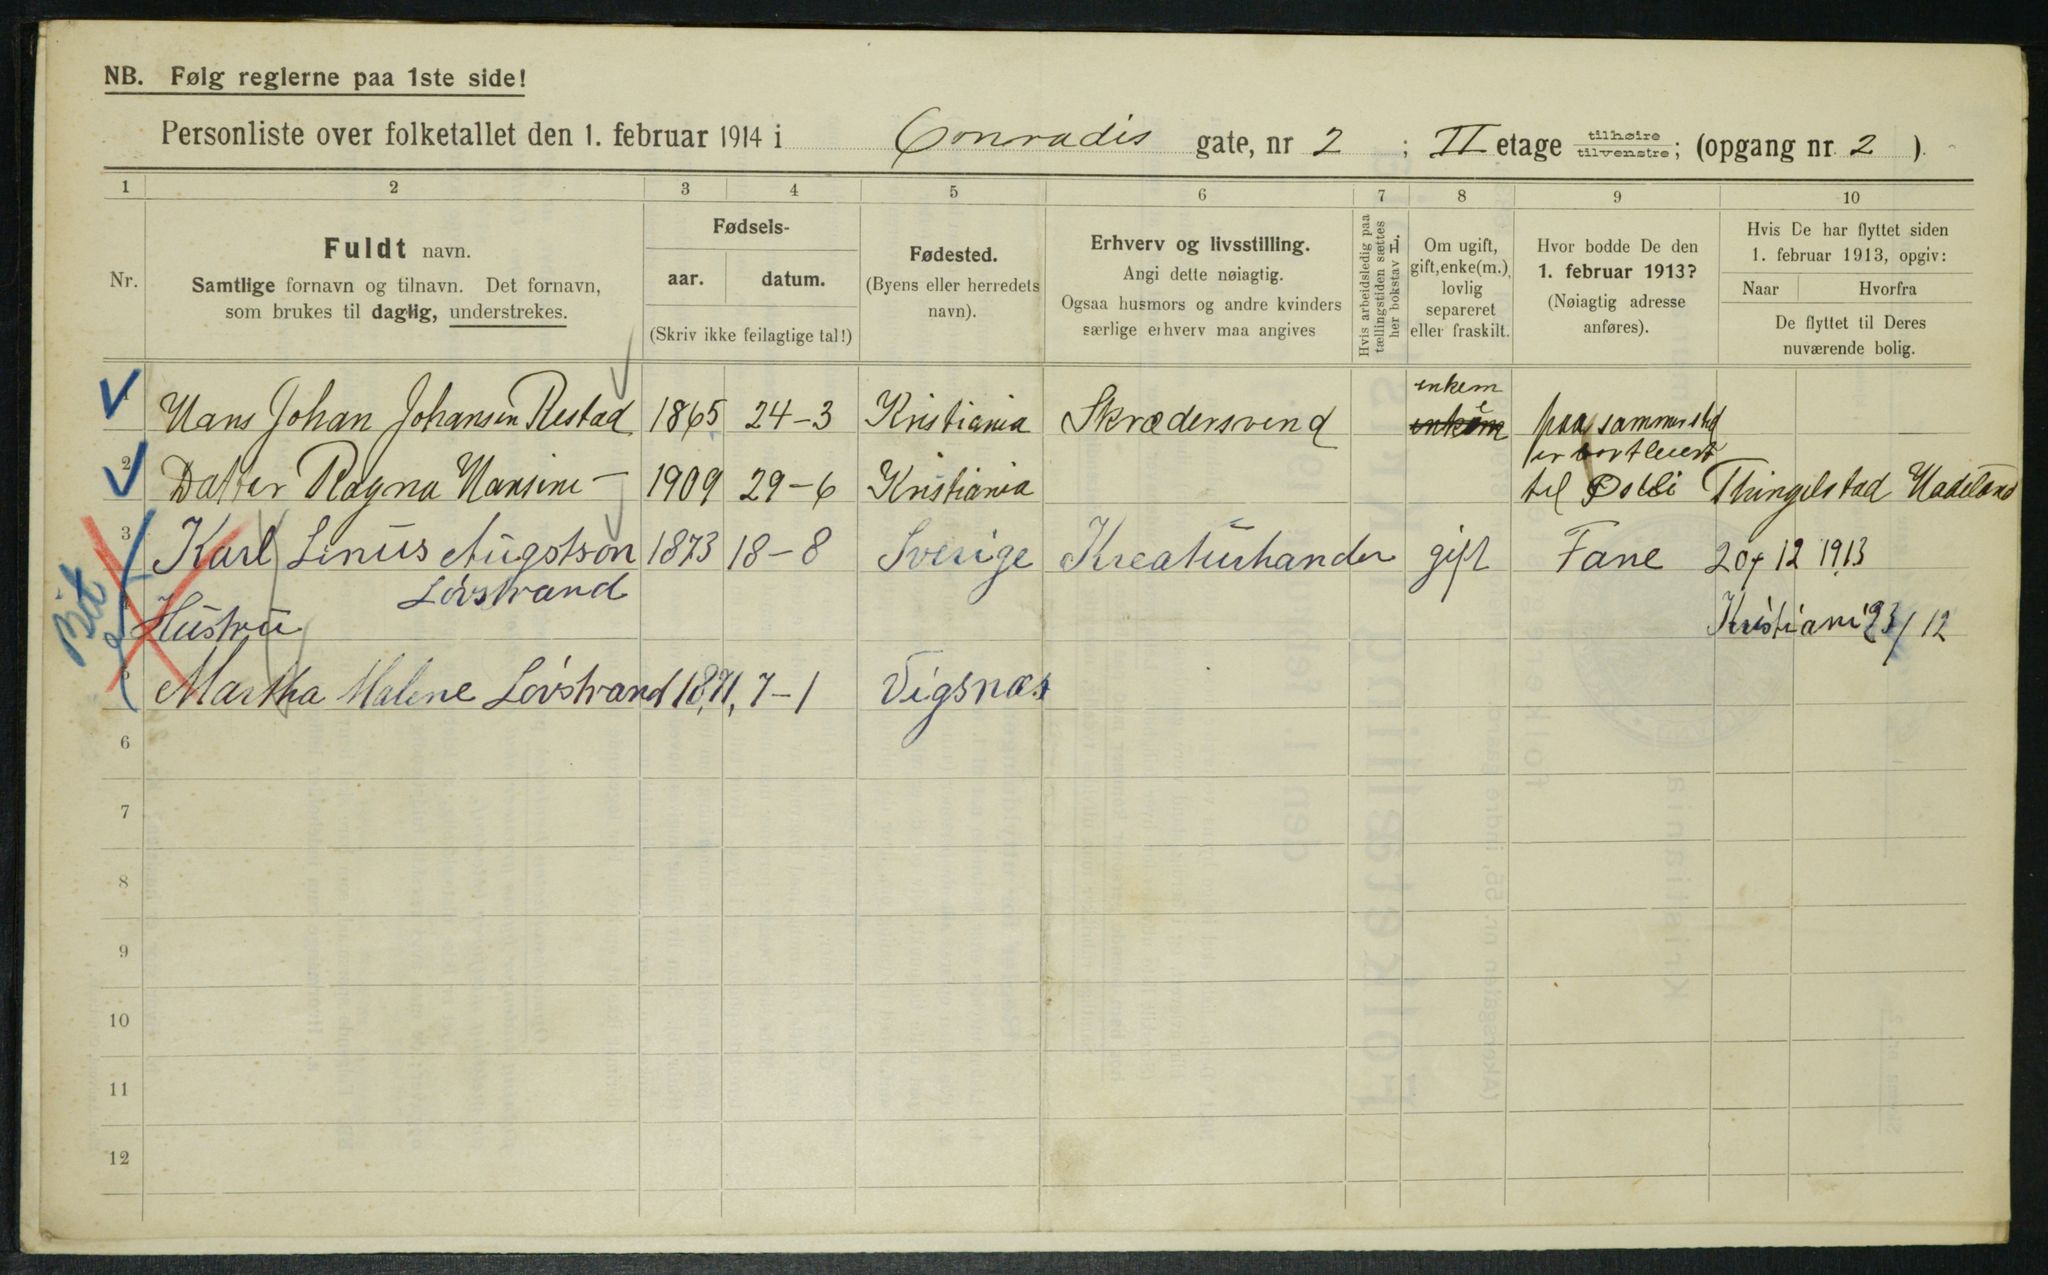 NB. Følg reglerne paa 1ste side!
Personliste over folketallet den 1. februar 1914 i Conradis gate, nr 2 ; II etage tilhøire tilvenstre; (opgang nr. 2 ).
1 2 3 4 5 6 7 8 9 10
Nr.
Fuldt navn.
Samtlige fornavn og tilnavn. Det fornavn,
som brukes til daglig, understrekes.
Fødsels-
aar. datum.
(Skriv ikke feilagtige tal!)
Fødested.
(Byens eller herredets
navn).
Erhverv og livsstilling.
Angi dette nøiagtig.
Ogsaa husmors og andre kvinders
særlige erhverv maa angives
Hvis arbeidsledig paa
tællingstiden sættes
her bokstav L.
Om ugift,
gift, enke(m.),
lovlig
separeret
eller fraskilt.
Hvor bodde De den
1. februar 1913?
(Nøiagtig adresse
anføres).
Hvis De har flyttet siden
1. februar 1913, opgiv:
Naar Hvorfra
De flyttet til Deres
nuværende bolig.
enkem
1 Hans Johan Johansen Restad 1865 24-3 Kristiania Skrædersvend enkem paa sammested
er bortleiert
2 Datter Ragna Hansine - 1909 29-6 Kristiania til Thingelstad Hadeland
3 Karl Linus Augstson 1873 18-8 Sverige Kreaturhander gift Fane 20/12 1913
Bit
Lóvstrand
4 Hustru Kristiani 23/12
5 Martha Malene Lóvstrand 1871, 7-1 Vigsnæs
6
7
8
9
10
11
12